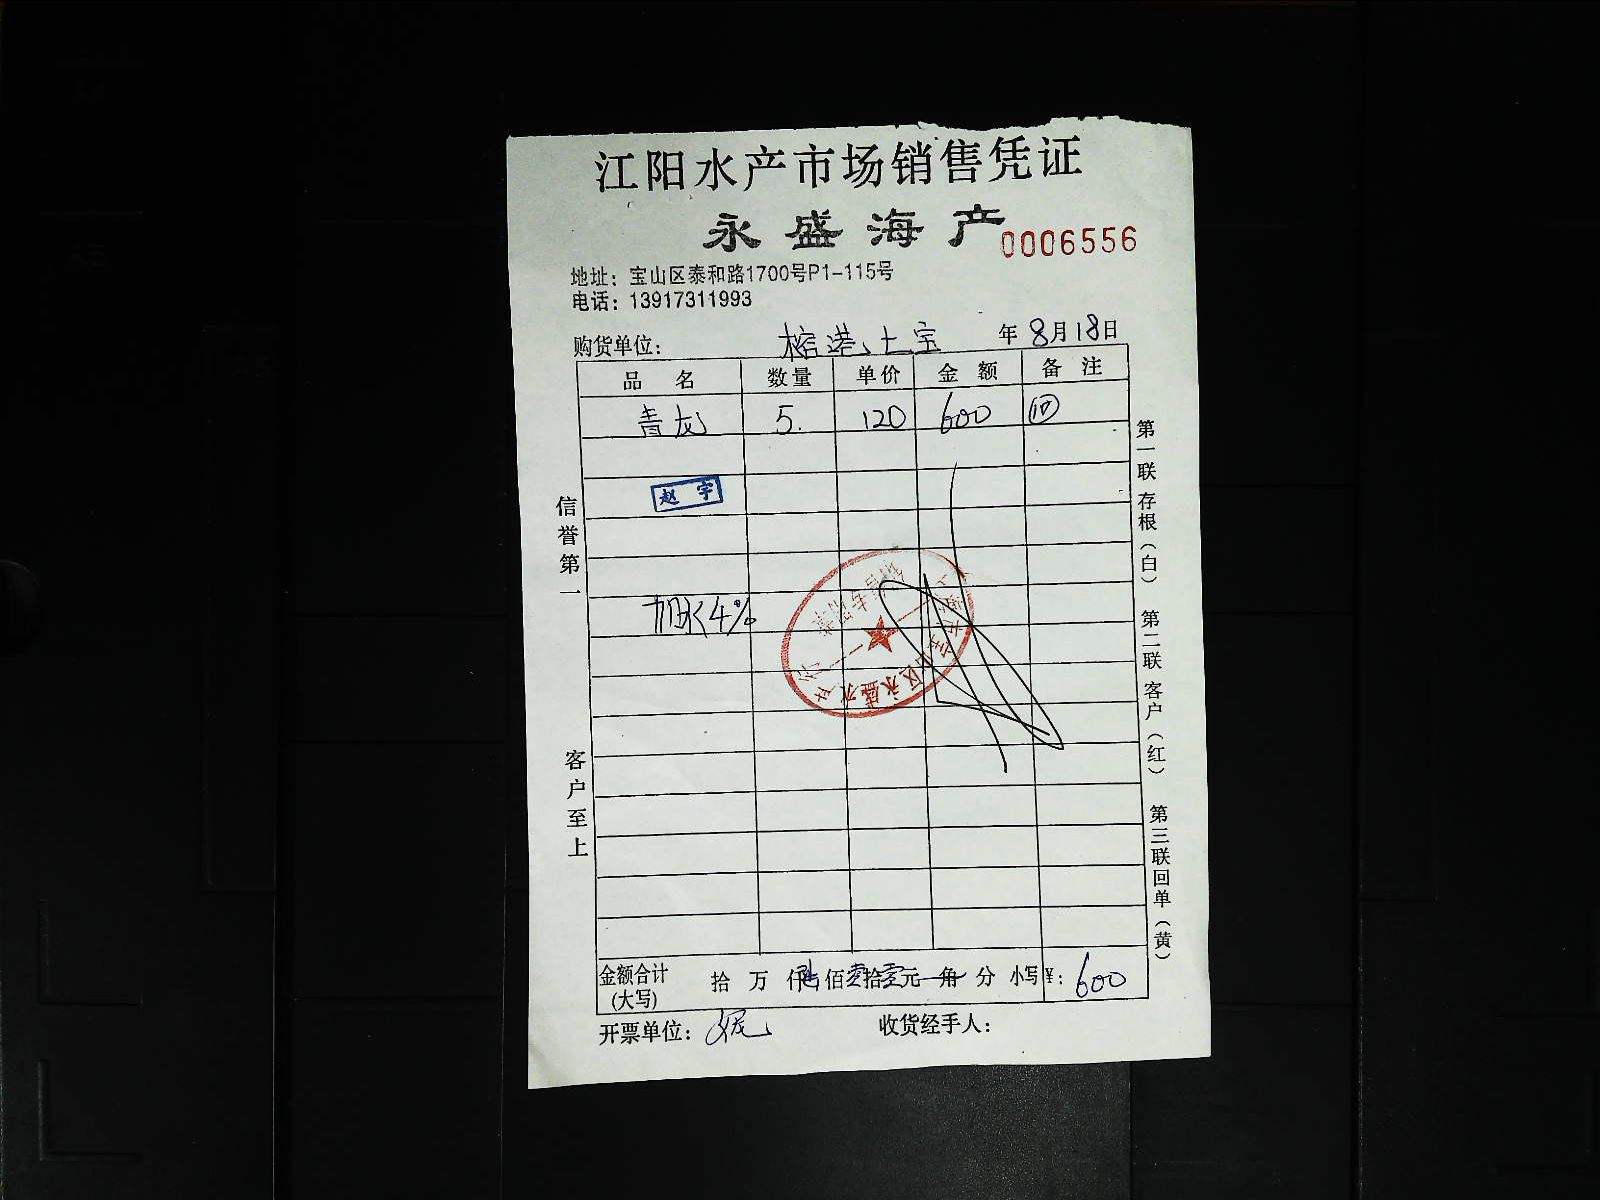 江阳水产市场销售凭证
永盛海产
0006556
地址：宝山区泰和路1700号P1-115号
电话：13917311993
购货单位： 榕港上宝 年8月18日
品 名 数量 单价 金 额 备 注
青龙 5. 120 600
赵宇
加冰4%
信誉第一
客户至上
第一联存根（白） 第二联客户（红） 第三联回单（黄）
金额合计 拾 万 仟陆佰零拾零元 角 分 小写¥：600
（大写）
开票单位： 收货经手人：